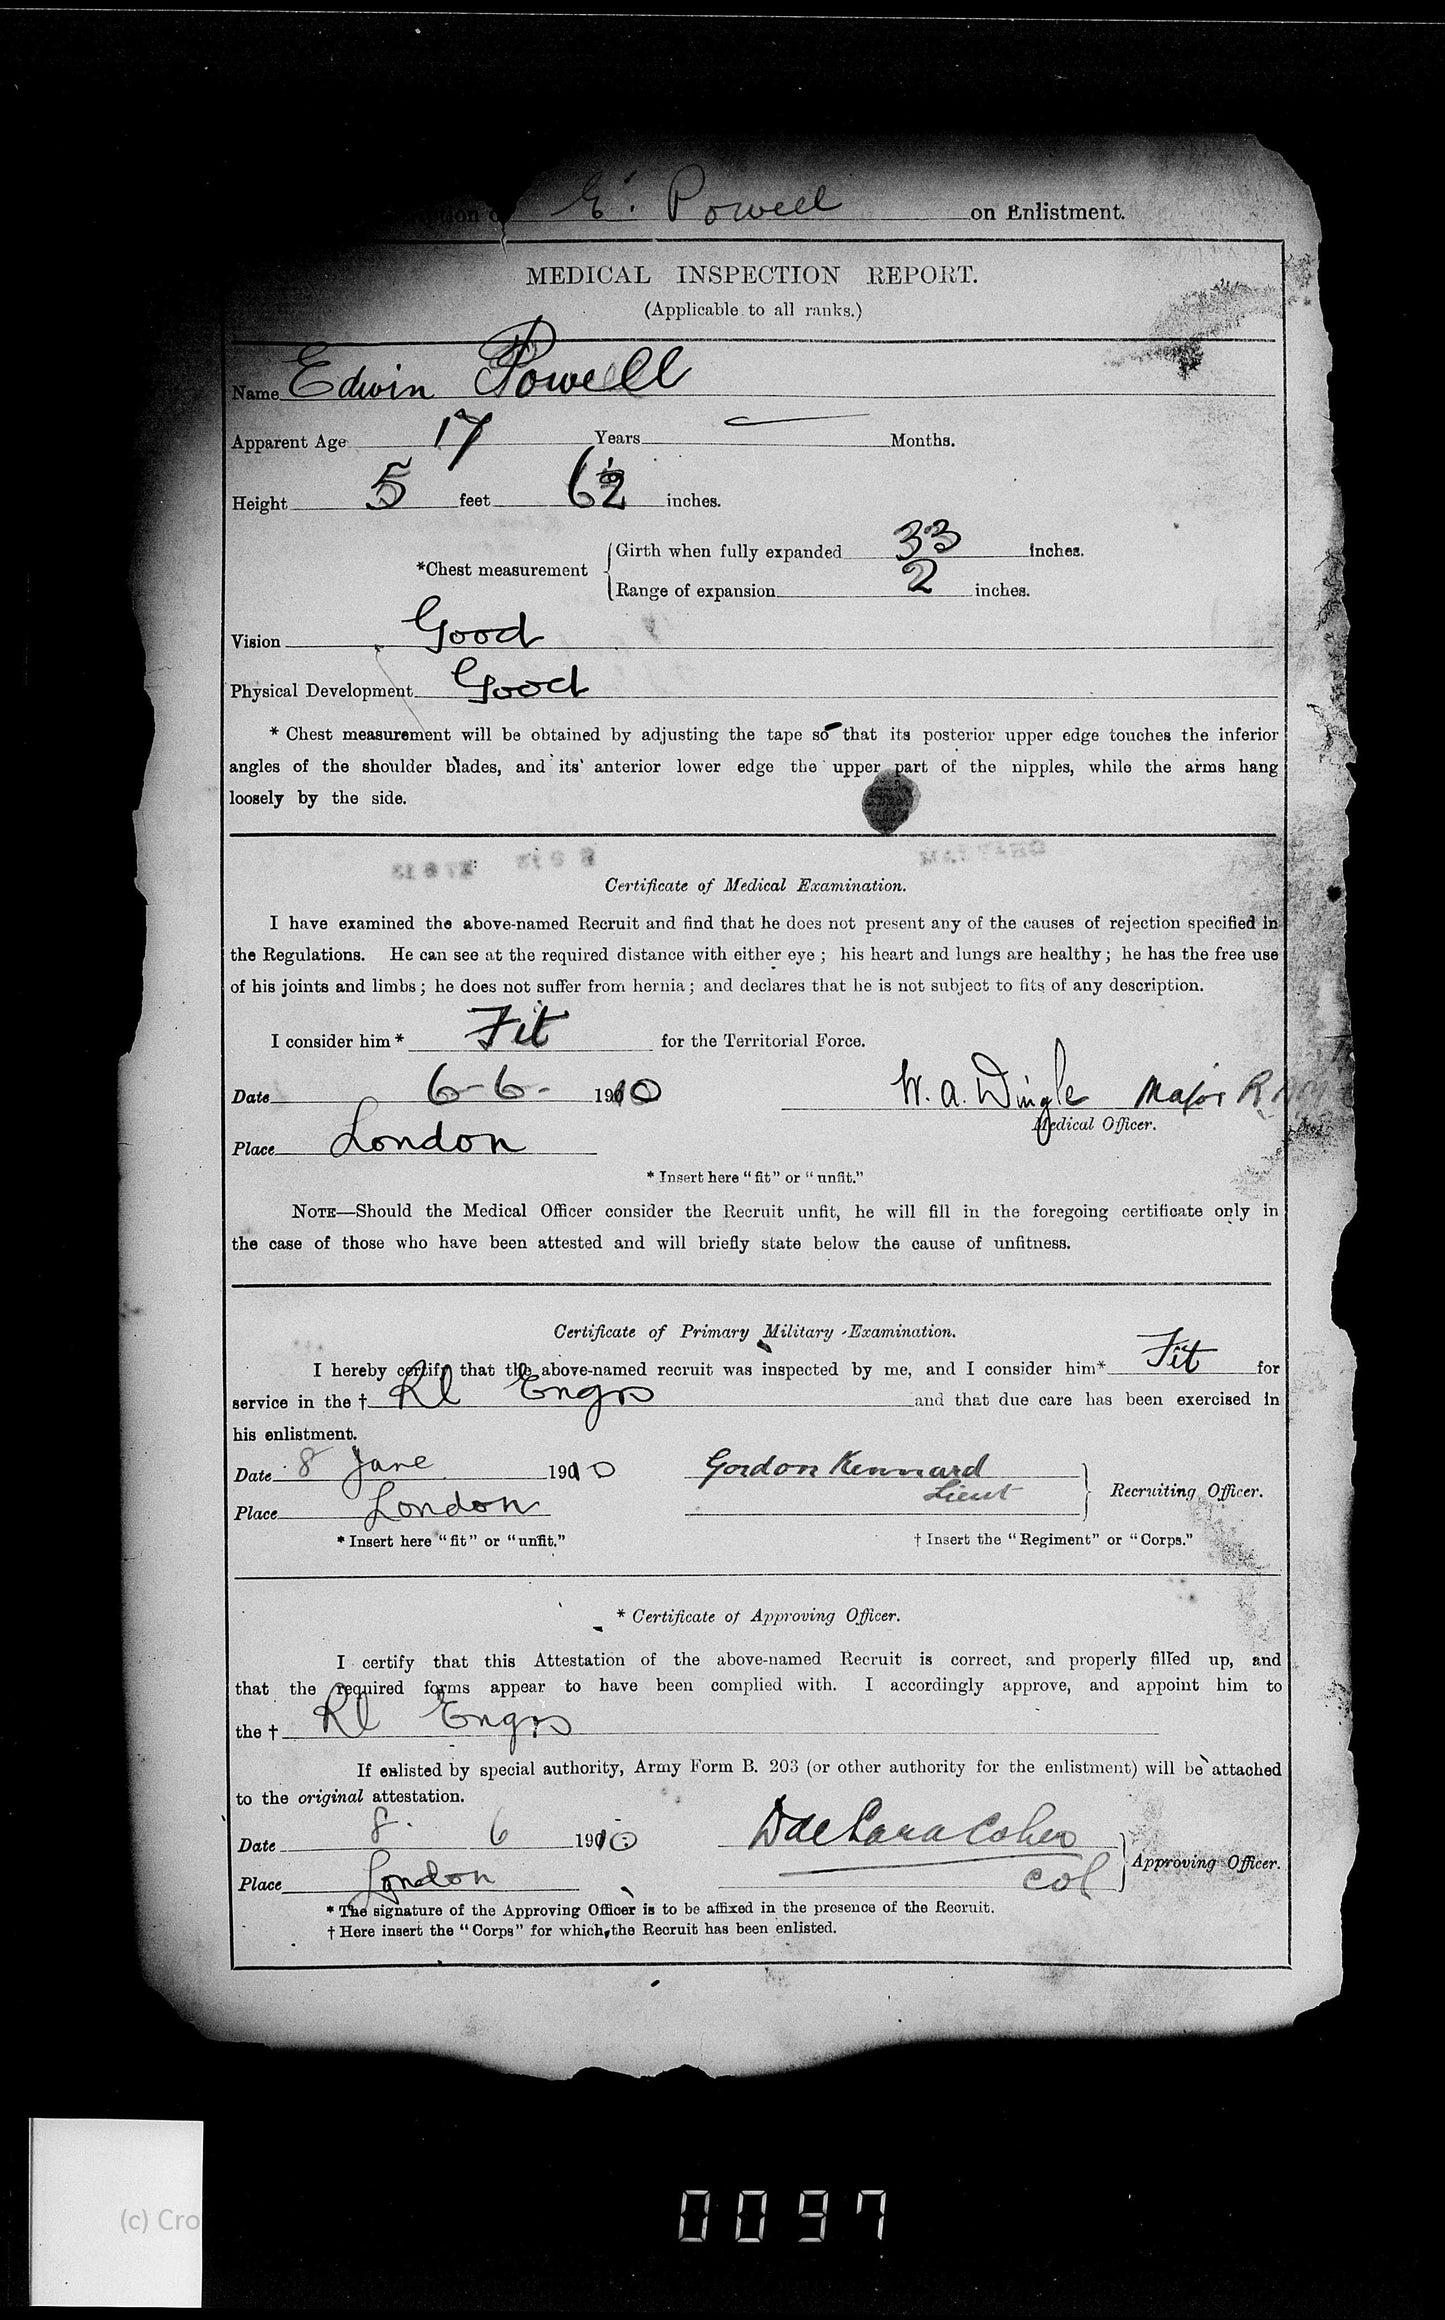 E. Powell on Enlistment.
MEDICAL INSPECTION REPORT.
(Applicable to all ranks.)
Name Edwin Powell
Apparent Age 17 Years — Months.
Height 5 feet 6½ inches.
*Chest measurement
Girth when fully expanded 33 inches.
Range of expansion 2 inches.
Vision Good
Physical Development Good
* Chest measurement will be obtained by adjusting the tape so that its posterior upper edge touches the inferior
angles of the shoulder blades, and its anterior lower edge the upper part of the nipples, while the arms hang
loosely by the side.
Certificate of Medical Examination.
I have examined the above-named Recruit and find that he does not present any of the causes of rejection specified in
the Regulations. He can see at the required distance with either eye; his heart and lungs are healthy; he has the free use
of his joints and limbs; he does not suffer from hernia; and declares that he is not subject to fits of any description.
I consider him* Fit for the Territorial Force.
Date 6-6- 1910 W. A. Wingle Major
Medical Officer.
Place London
* Insert here "fit" or "unfit."
NOTE—Should the Medical Officer consider the Recruit unfit, he will fill in the foregoing certificate only in
the case of those who have been attested and will briefly state below the cause of unfitness.
Certificate of Primary Military Examination.
I hereby certify that the above-named recruit was inspected by me, and I consider him* Fit for
service in the † Rl Engrs and that due care has been exercised in
his enlistment.
Date 8 June 1910 Gordon Kennard
Lieut Recruiting Officer.
Place London
* Insert here "fit" or "unfit." † Insert the "Regiment" or "Corps."
* Certificate of Approving Officer.
I certify that this Attestation of the above-named Recruit is correct, and properly filled up, and
that the required forms appear to have been complied with. I accordingly approve, and appoint him to
the † Rl Engrs
If enlisted by special authority, Army Form B. 203 (or other authority for the enlistment) will be attached
to the original attestation.
Date 8. 6 1910 D de Lara Cohen
Col Approving Officer.
Place London
* The signature of the Approving Officer is to be affixed in the presence of the Recruit.
† Here insert the "Corps" for which the Recruit has been enlisted.
(c) Cro
0097